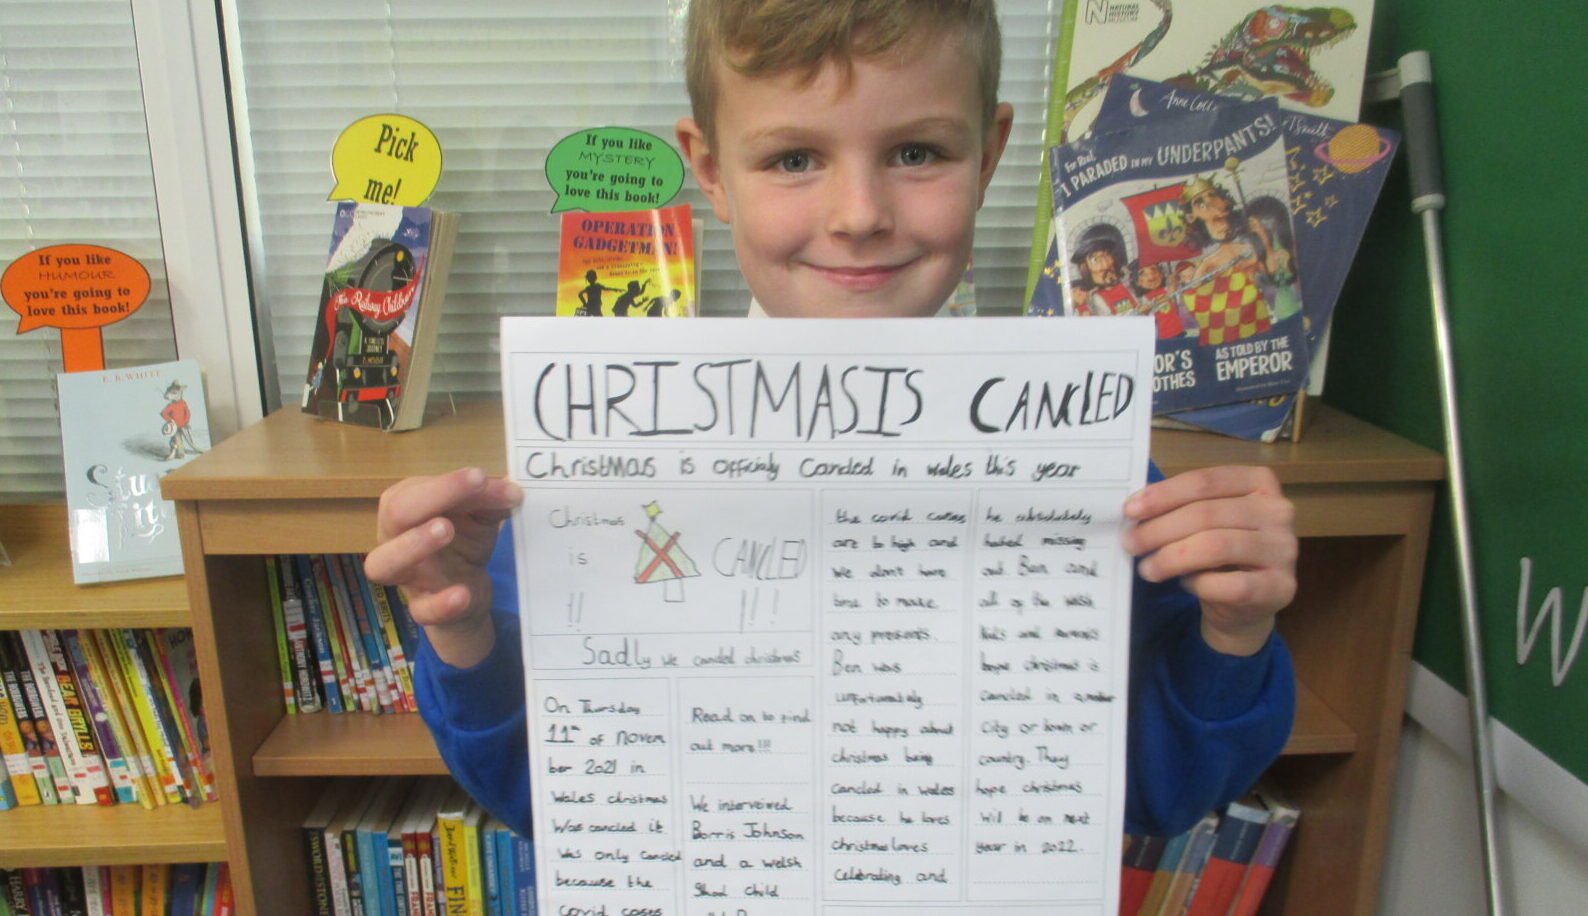 NATURAL
HISTORY
MUSEUM
Pick
me!
If you like
MYSTERY
you're going to
love this book!
If you like
HUMOUR
you're going to
love this book!
The Railway Children
OPERATION
GADGETMAN!
E. B. WHITE
For Real,
I PARADED IN MY UNDERPANTS!
AS TOLD BY THE
EMPEROR
CHRISTMAS IS CANCLED
Christmas is officialy cancled in wales this year
Christmas
is
CANCLED
!!
!!!
Sadly we cancled christmas
On Thursday
11th of Novem
ber 2021 in
Wales christmas
was cancled it
was only cancled
because the
covid cases
Read on to find
out more!!!
We interveiwed
Borris Johnson
and a welsh
child
the covid cases
are to high and
we don't have
time to make
any presents.
Ben was
unfortunately
not happy about
christmas being
cancled in wales
because he loves
christmas loves
celebrating and
he absolutely
hated missing
out. Ben and
all of the welsh
kids and parents
hope christmas is
cancled in another
city or town or
country. They
hope christmas
will be on next
year in 2022.
W